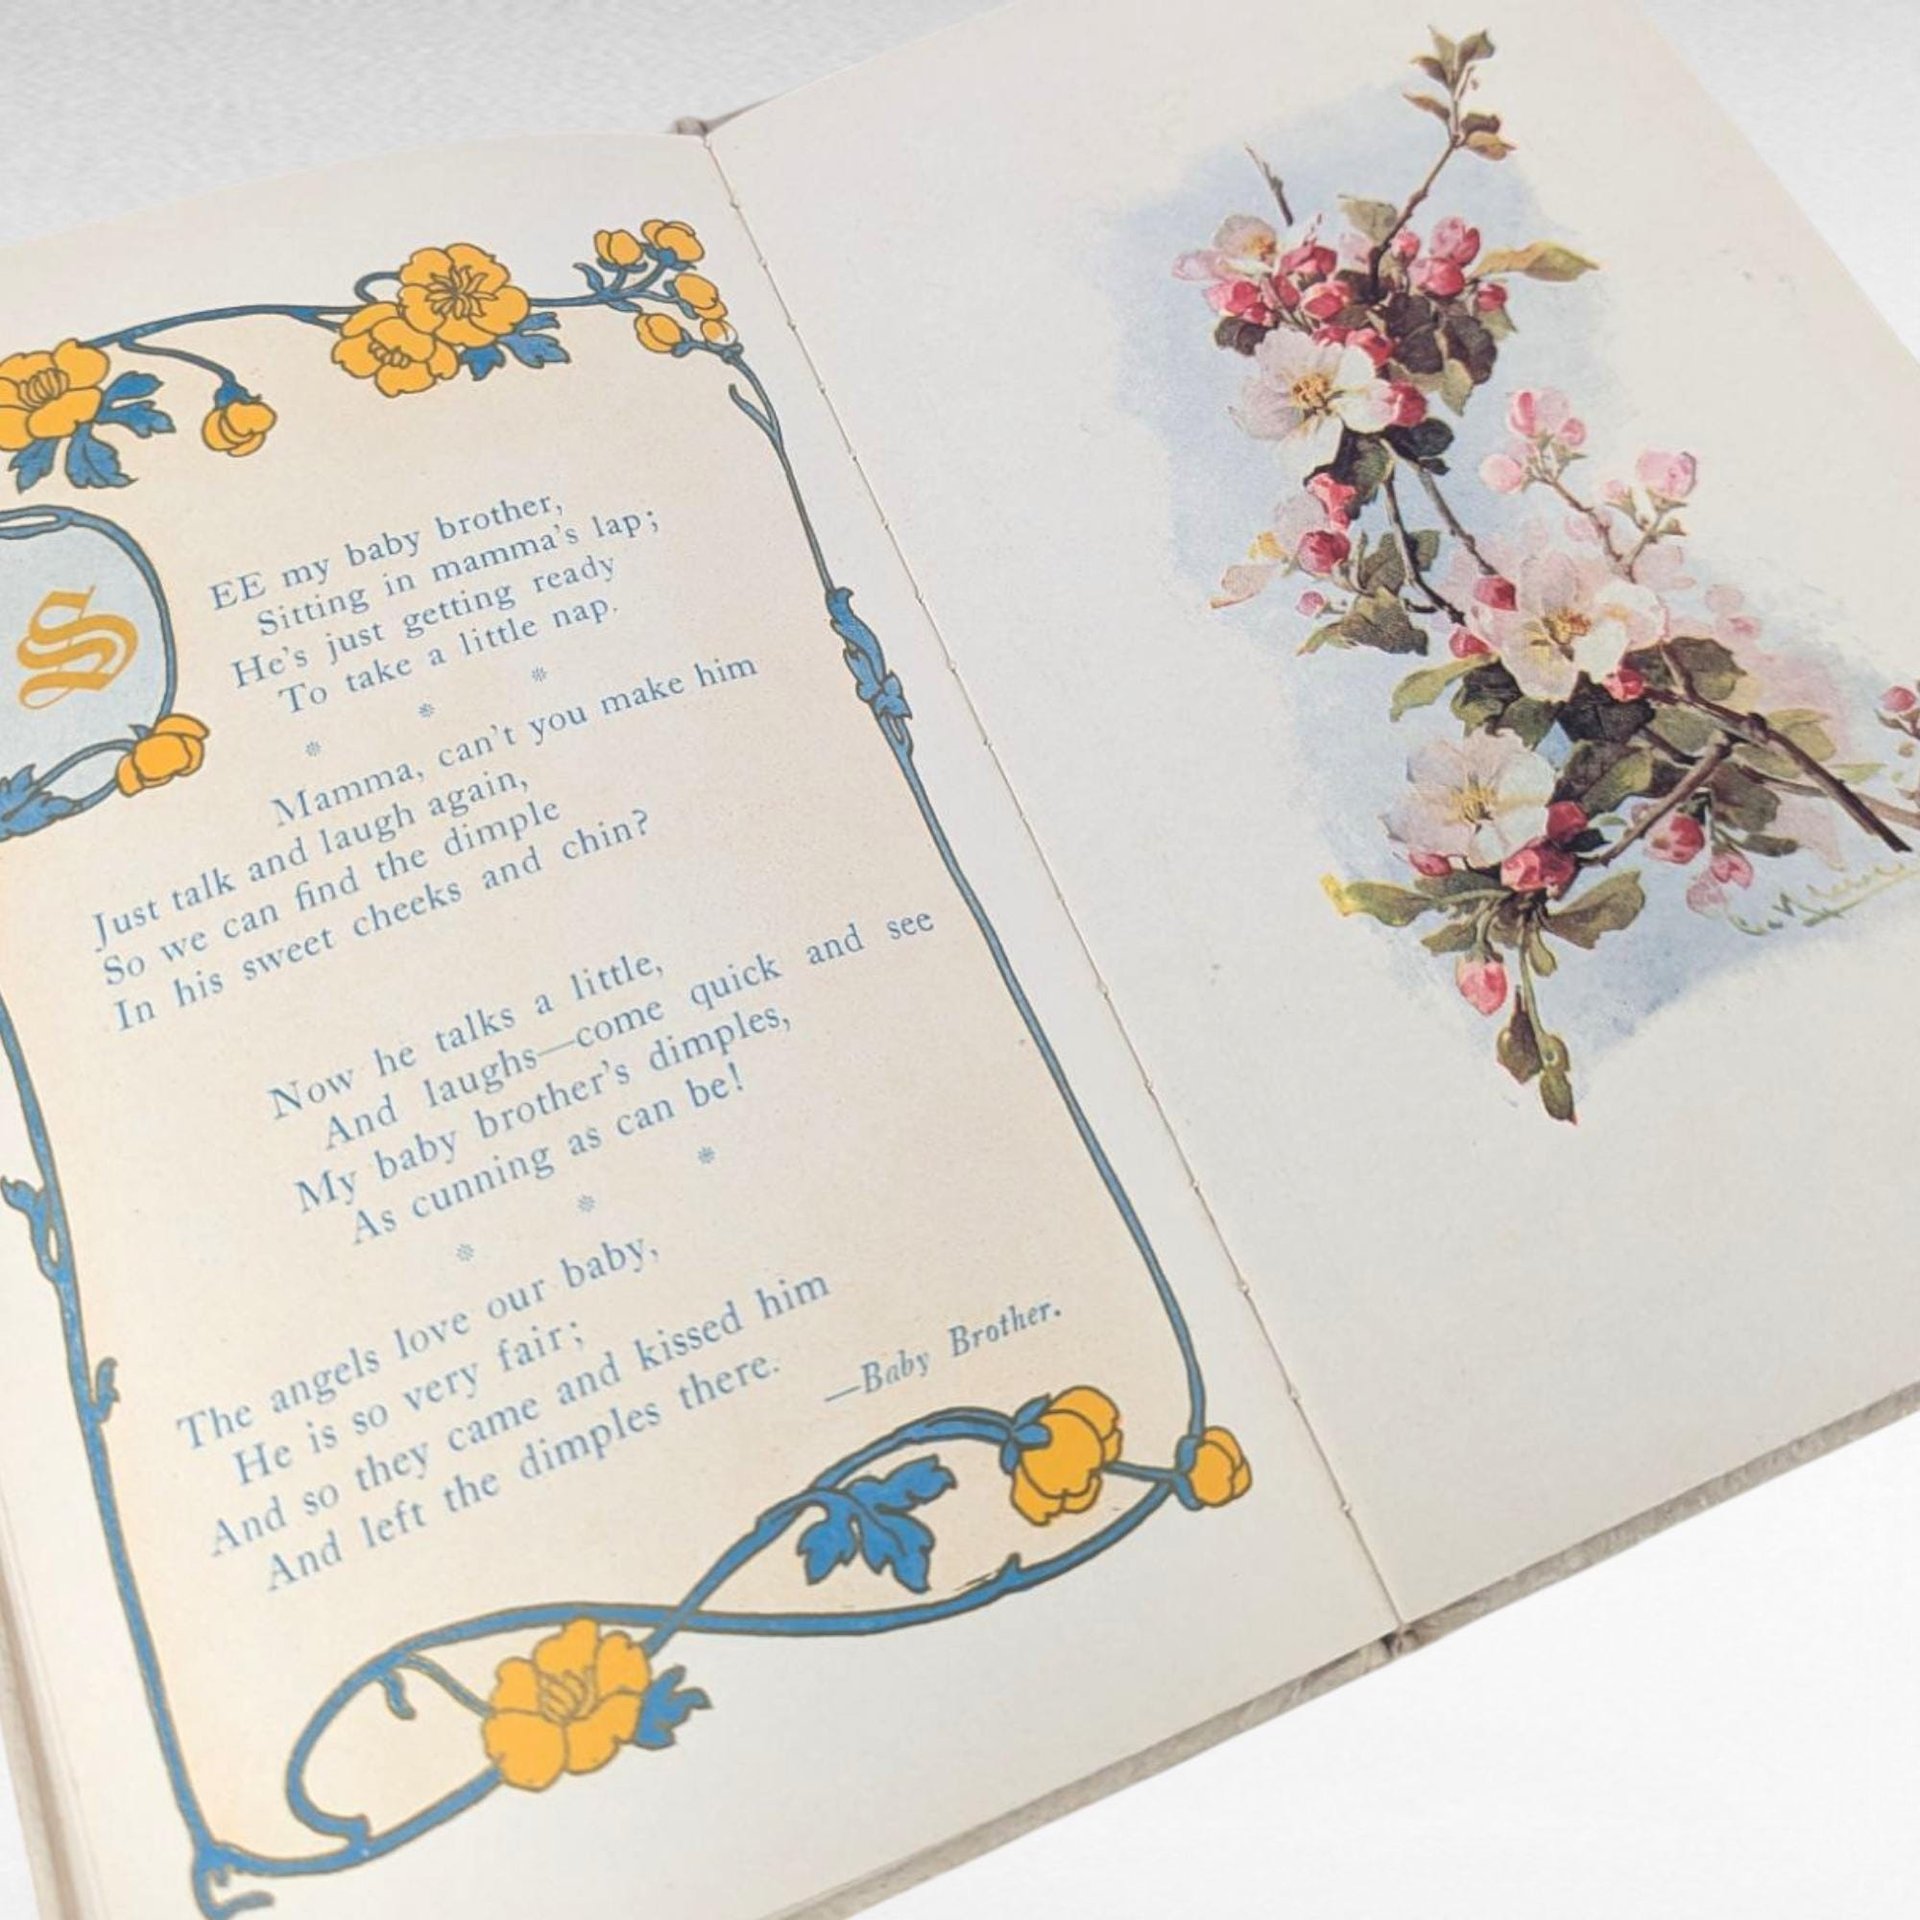 SEE my baby brother,
Sitting in mamma's lap;
He's just getting ready
To take a little nap.
* * *
Mamma, can't you make him
Just talk and laugh again,
So we can find the dimple
In his sweet cheeks and chin?
Now he talks a little,
And laughs—come quick and see
My baby brother's dimples,
As cunning as can be!
* * *
The angels love our baby,
He is so very fair;
And so they came and kissed him
And left the dimples there.
—Baby Brother.